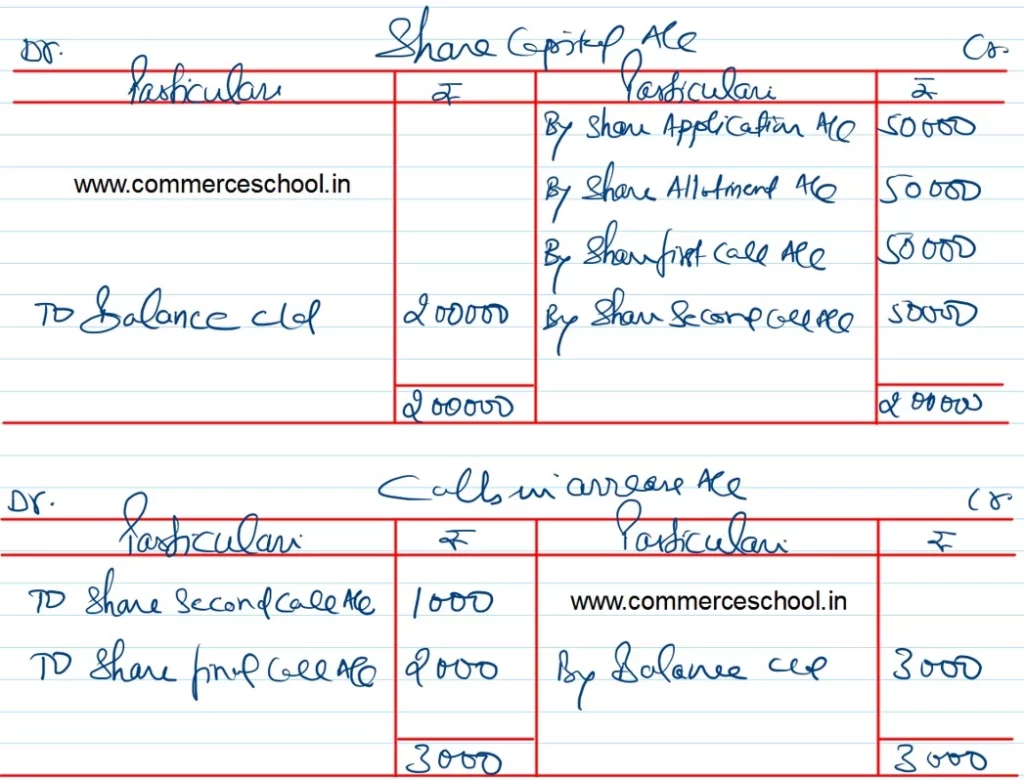 Share Capital A/c
Dr. Cr.
Particulars ₹ Particulars ₹
By Share Application A/c 50000
www.commerceschool.in By Share Allotment A/c 50000
By Share first Call A/c 50000
TO Balance c/d 200000 By Share Second Call A/c 50000
200000 200000
Calls in arrears A/c
Dr. Cr.
Particulars ₹ Particulars ₹
TO Share Second Call A/c 1000 www.commerceschool.in
TO Share final Call A/c 2000 By Balance c/d 3000
3000 3000